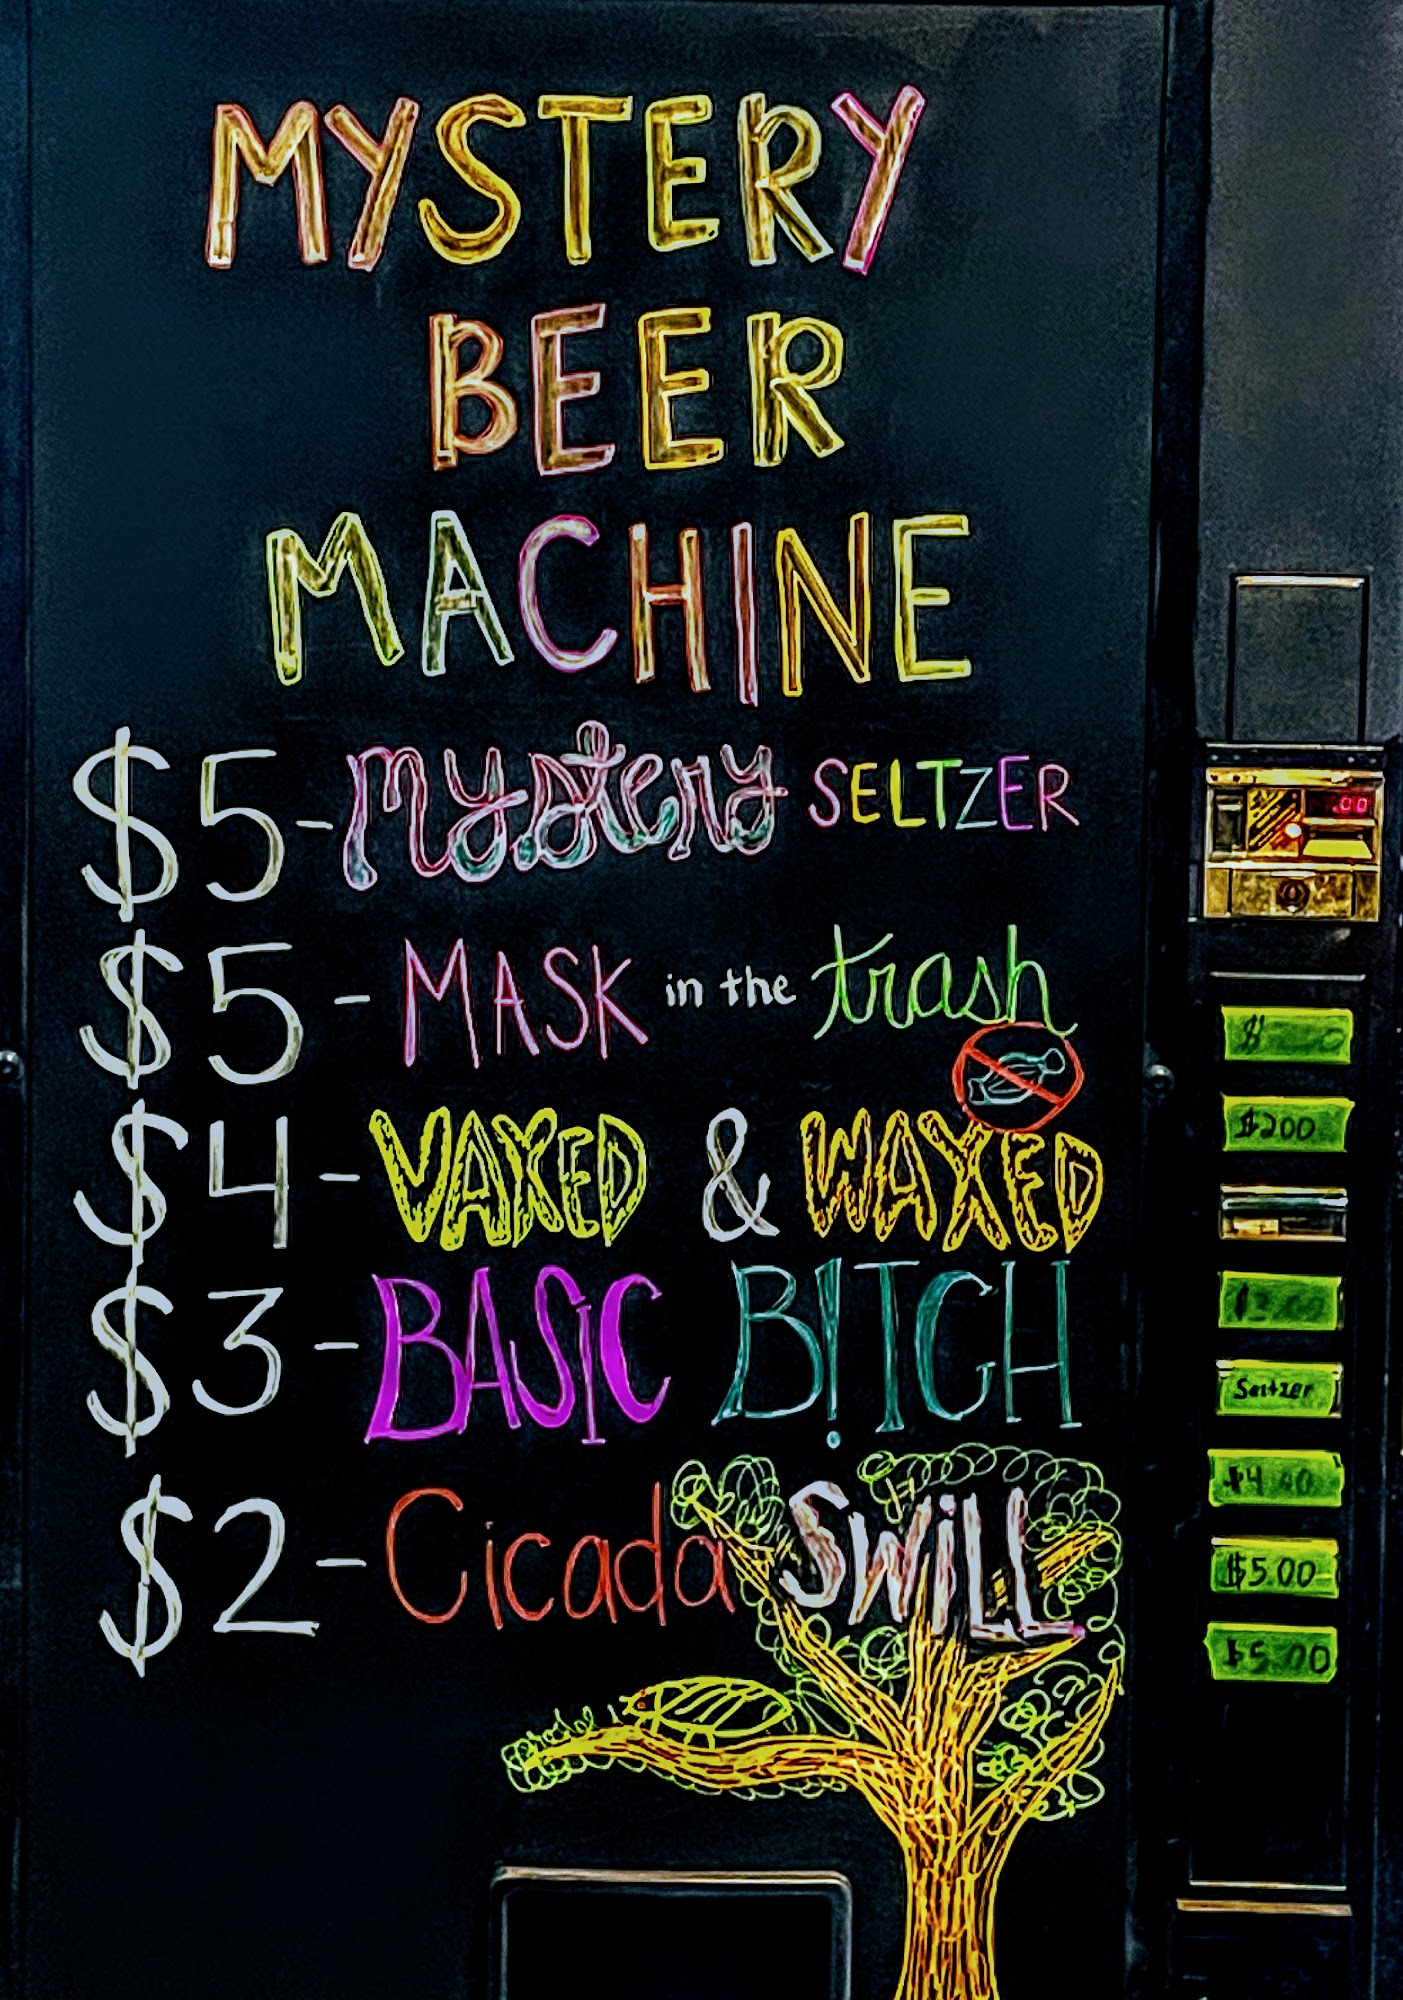 MYSTERY
BEER
MACHINE
$5-mystery SELTZER
$5-MASK in the trash
$4-VAXED & WAXED
$3-BASIC B!TCH
$2-Cicada SWILL
$200
Seltzer
$5.00
$5.00